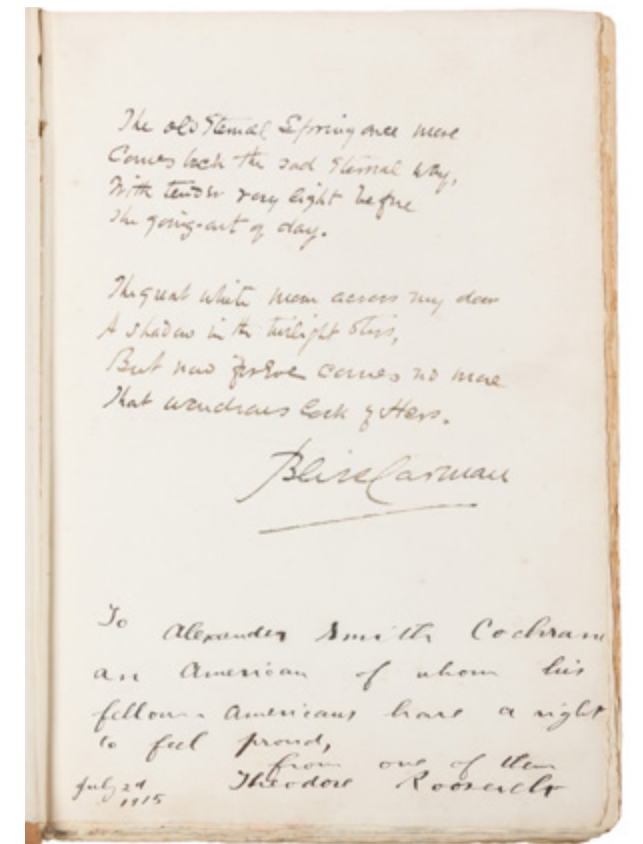 The old Eternal Spring once more
Comes back the sad eternal way,
With tender rosy light before
The going-out of day.
The great white moon across my door
A shadow in the twilight stirs,
But now forever comes no more
That wondrous look of Hers.
Bliss Carman
To Alexander Smith Cochrane
an American of whom his
fellow-Americans have a right
to feel proud,
from one of them
July 2d Theodore Roosevelt
1915